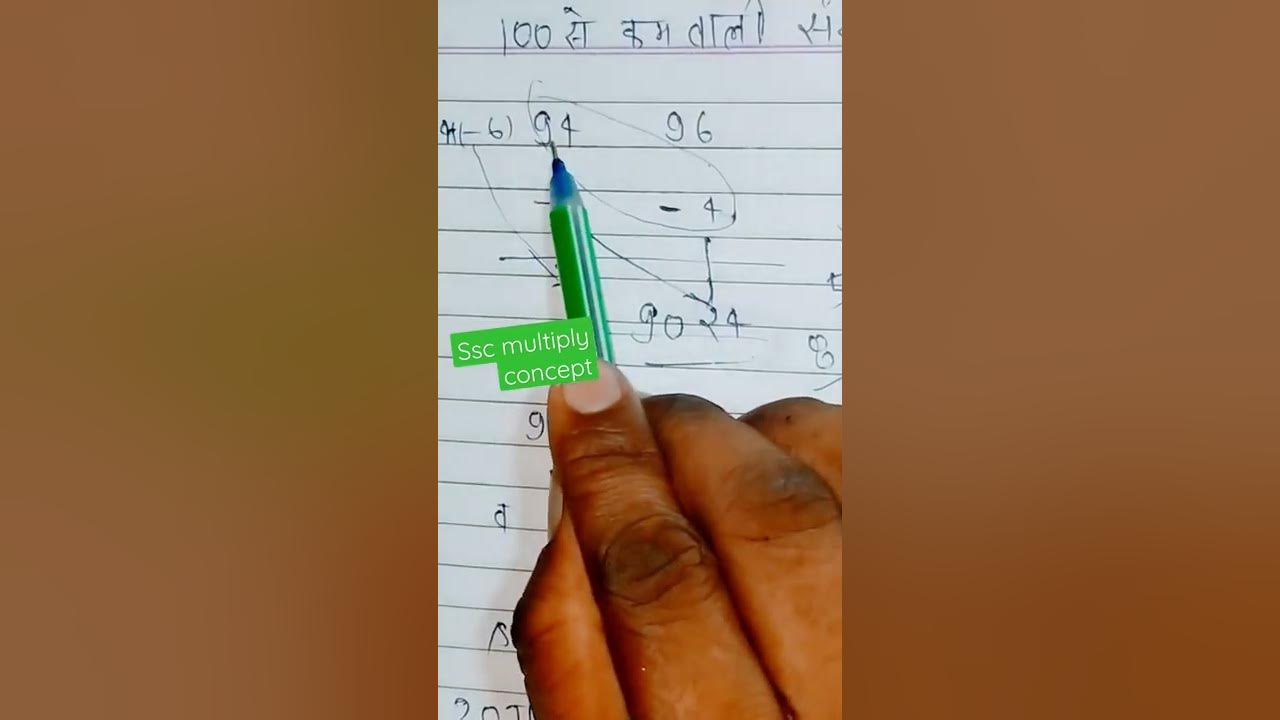 100 से कम वाली
(-6) 94 96
- 4
9024
Ssc multiply
concept
9
व